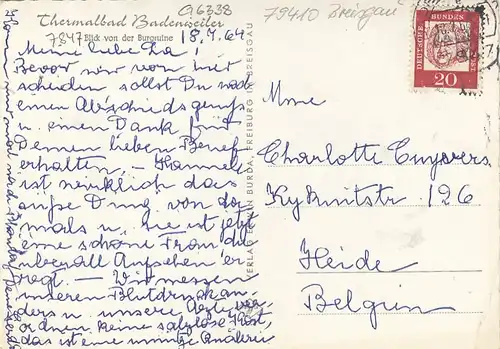 Thermalbad Badenweiler
Blick von der Burgruine
G6838
7847
79410 Breisgau
18.4.64
Meine liebe Lo!
Bevor wir von hier
scheiden sollst Du noch
einen Abschiedsgruß
u. einen Dank für
Deinen lieben Brief
erhalten, – Hannele
ist wirklich das
süße Ding von da-
mals u. sie ist jetzt
eine schöne Frau die
überall Aufsehen er-
regt. – Wir messen
unseren Blutdruck an-
ders u. unsere Ärzte ver-
ordnen keine salzlose Kost,
das ist eine unnütze Quälerei
VERLAG FRANZ BURDA, FREIBURG BREISGAU
DEUTSCHE BUNDESPOST
20
Mme
Charlotte Cuyvers
126
Heide
Belgien